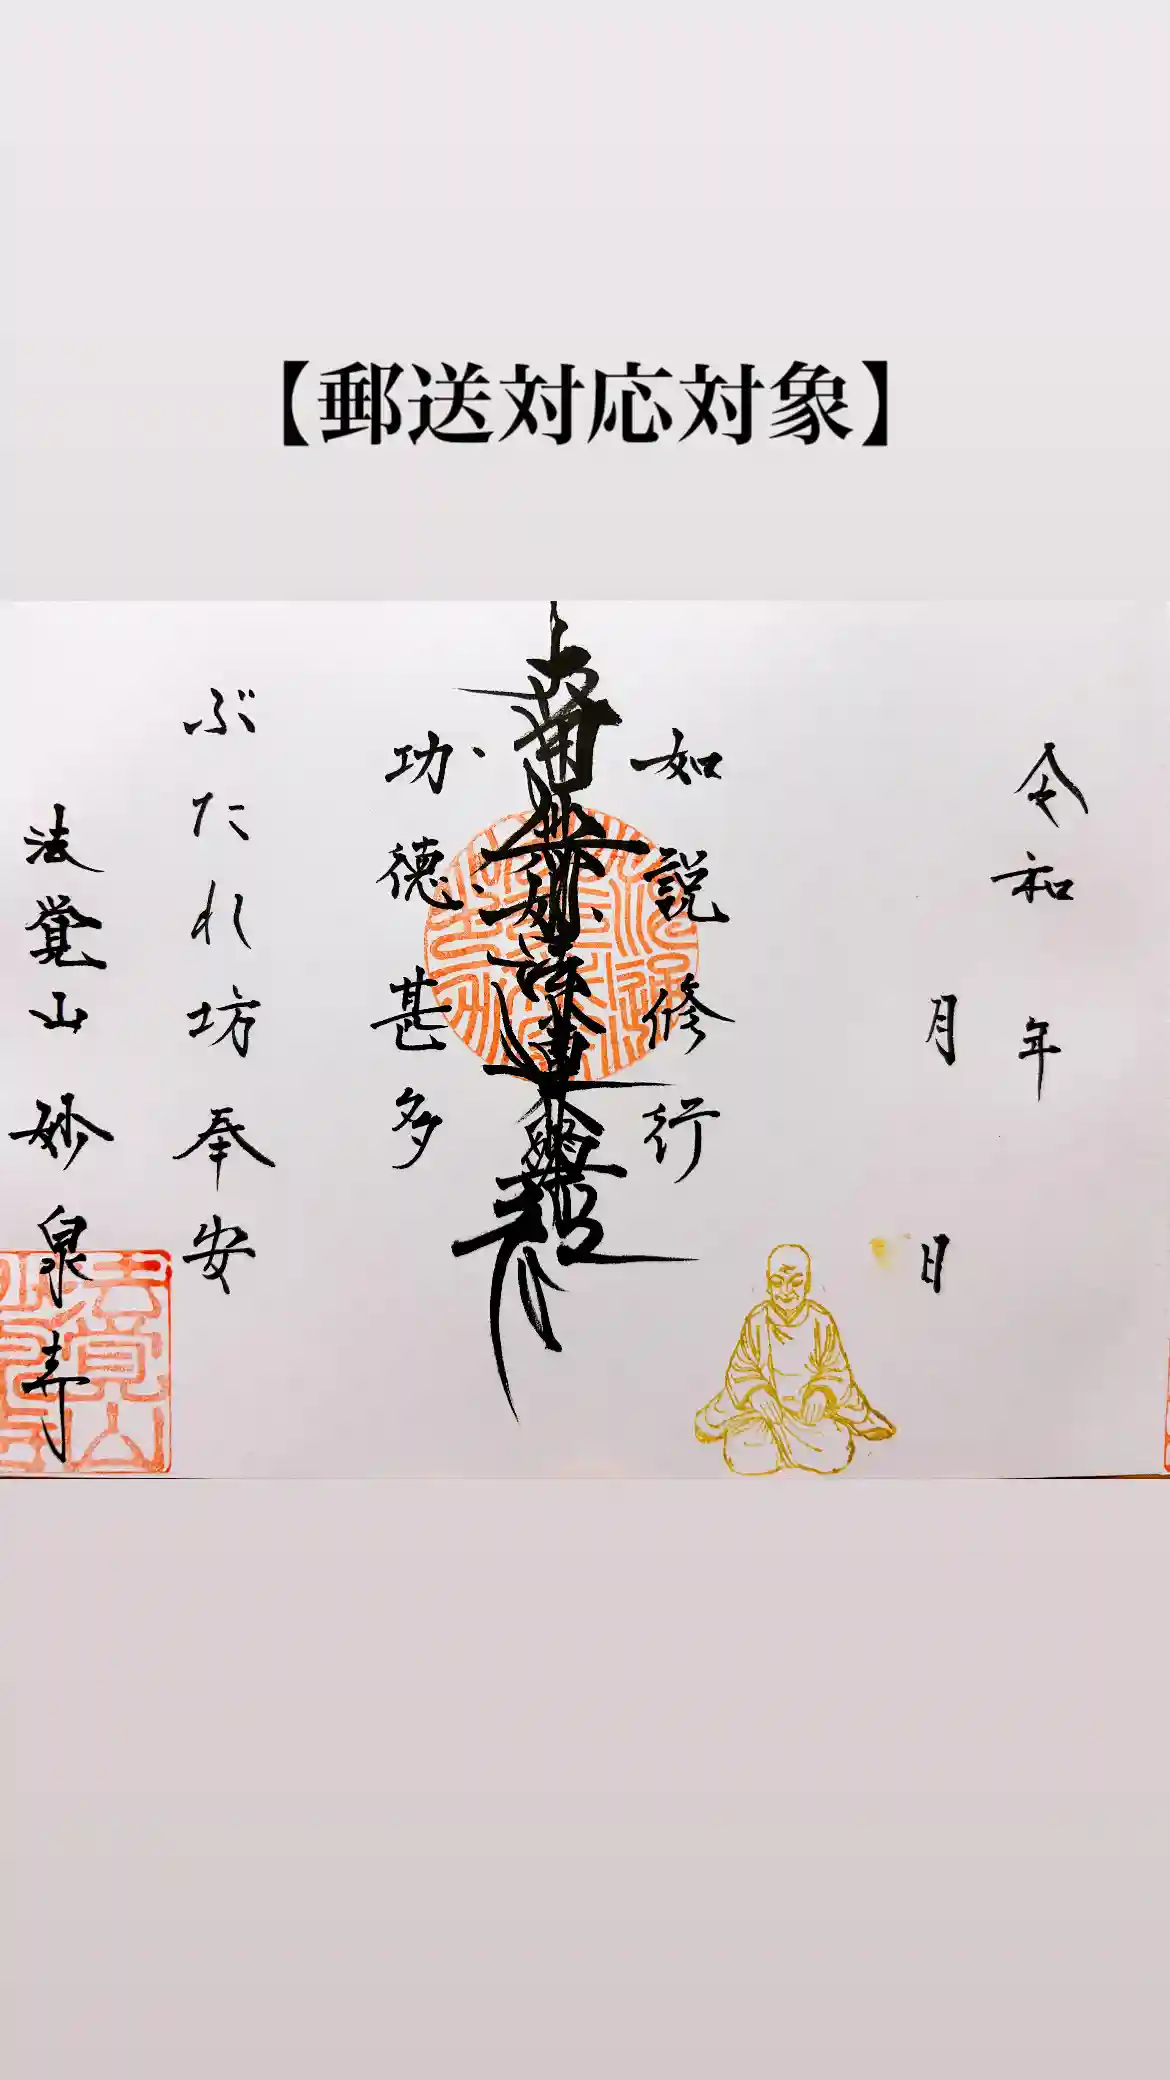 【郵送対応対象】
令和 年
月 日
如説修行
南無妙法蓮華経
功徳甚多
ぶたれ坊奉安
法覚山 妙泉寺
法覚山